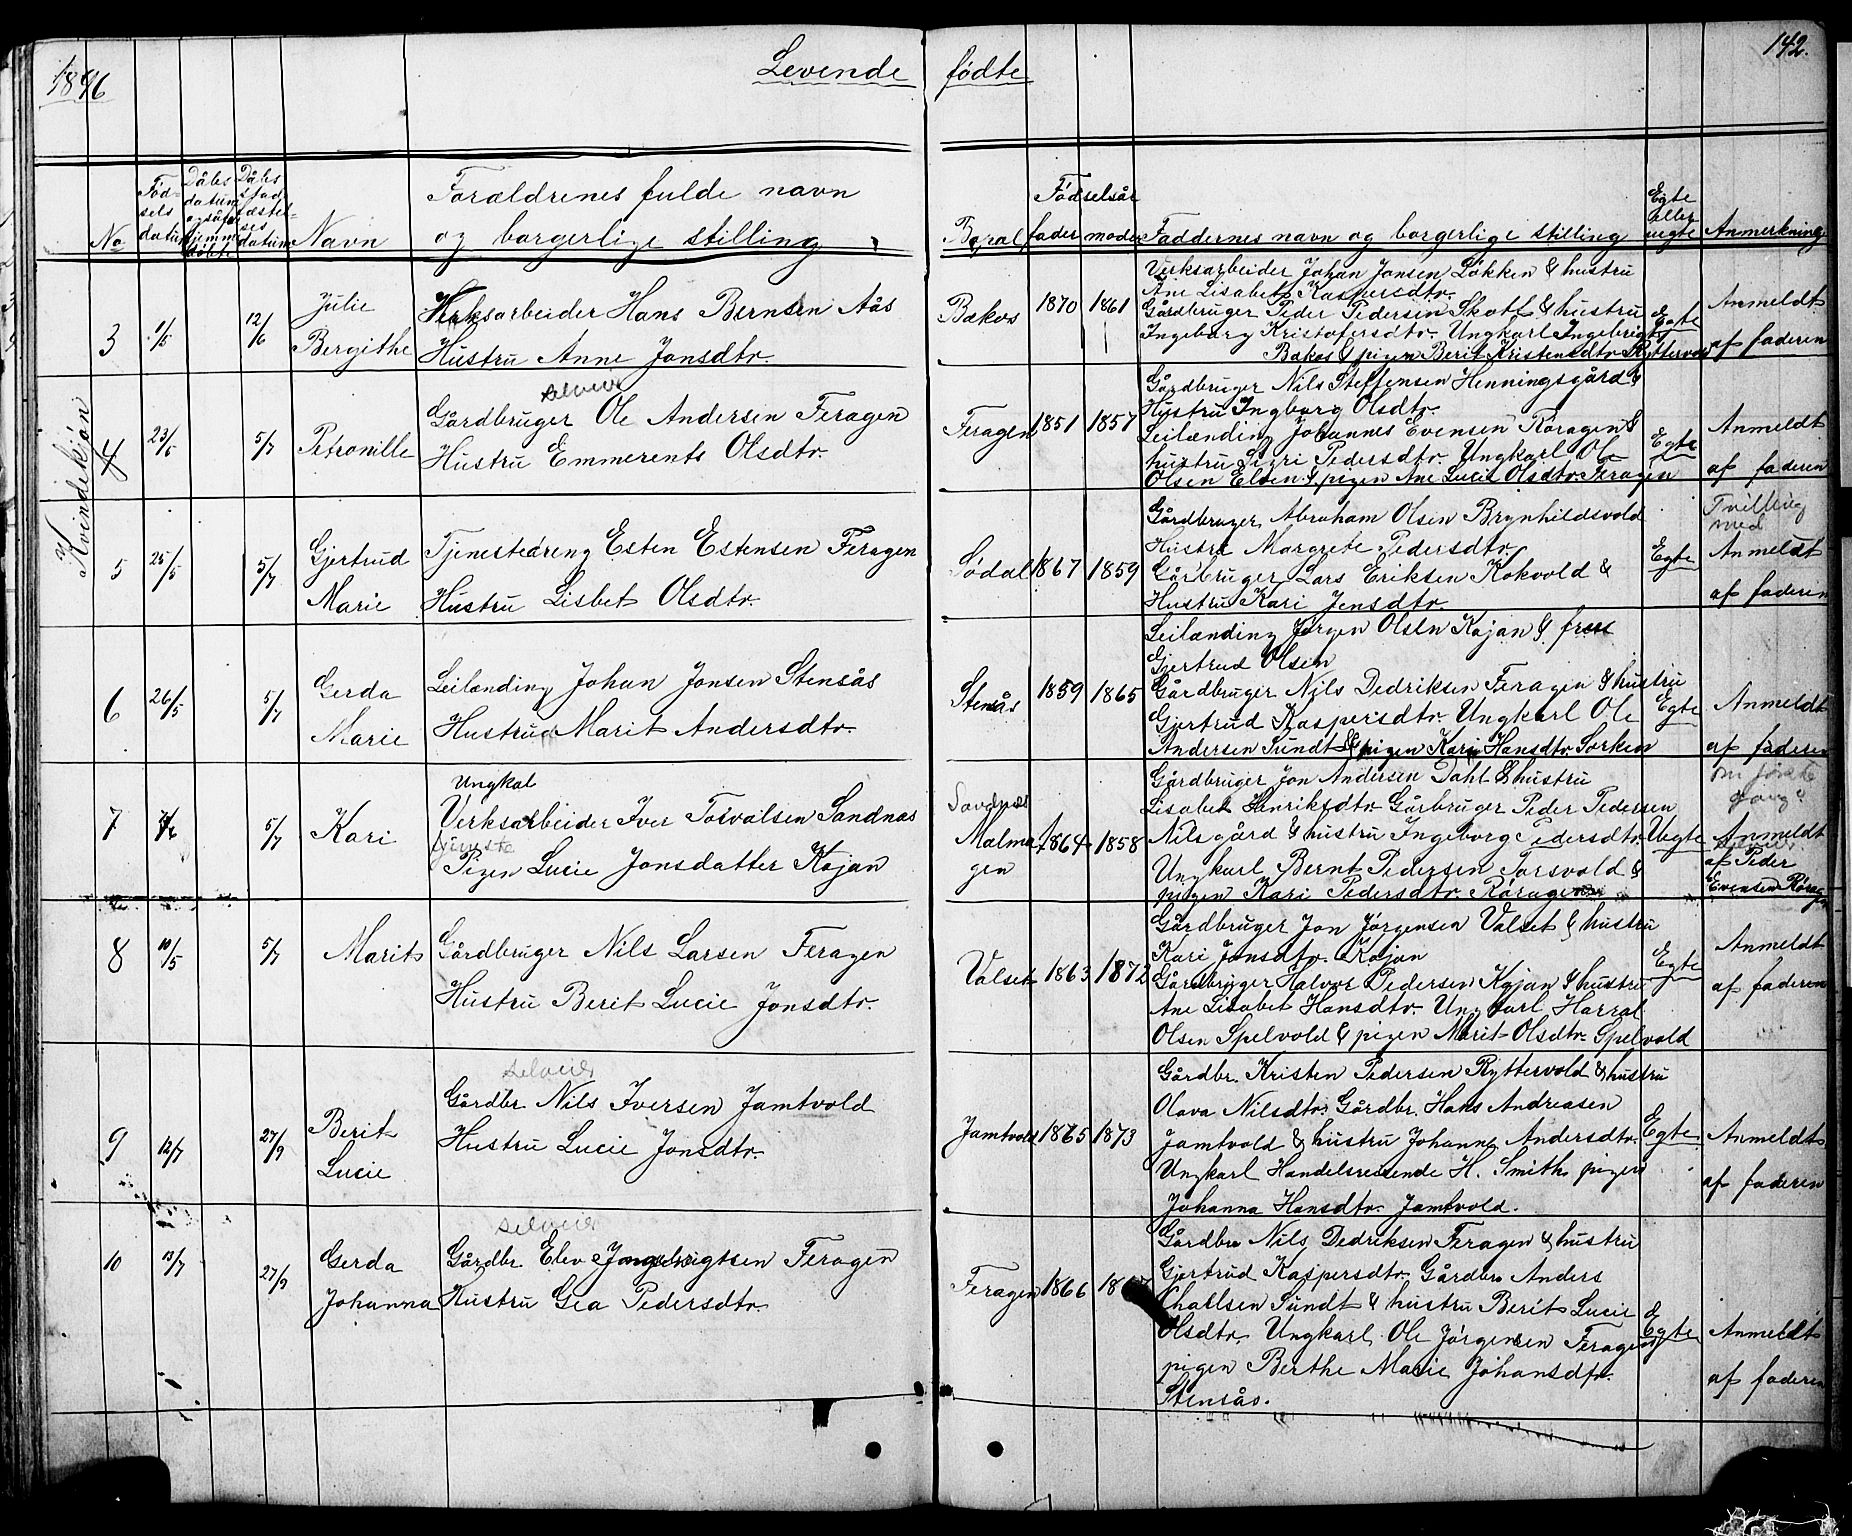 1896
Levende fødte
142.
No
Fødsels datum
Dåbs datum også hjemmedöbte
Dåbs stadfæstelses datum
Navn
Forældrenes fulde navn
og borgerlige stilling
Bopæl
Fødselsår
fader moder
Faddernes navn og borgerlige stilling
Egte eller uegte
Anmerkning
Kvindekjøn
3 1/5 12/6
Julie
Bergithe
Verksarbeider Hans Bernsen Aås
Hustru Anne Jonsdtr.
Bakos 1870 1861
Verksarbeider Johan Jonsen Løkken & hustru
Ane Lisabet Kaspersdtr.
Gårdbruger Peder Pedersen Skott & hustru
Ingeborg Kristofersdtr. Ungkarl Ingebrigt
Bakos & pigen Berit Kristensdtr Ryttervold
Egte
Anmeldt
af faderen
4 23/5 5/7
Petronille
selveier
Gårdbruger Ole Andersen Feragen
Hustru Emmerents Olsdtr.
Feragen 1851 1857
Gårdbruger Nils Steffensen Henningsgård &
Hustru Ingborg Olsdtr.
Leilænding Johannes Evensen Røragen &
hustru Sigri Pedersdtr. Ungkarl Ole
Olsen Elven & pigen Ane Lucie Olsdtr. Feragen
Egte
Anmeldt
af faderen
5 25/5 5/7
Gjertrud
Marie
Tjenestedreng Esten Estensen Feragen
Hustru Lisbet Olsdtr.
Sødal 1867 1859
Gårdbruger Abraham Olsen Brynhildsvold
Hustru Margrete Pedersdtr.
Gårbruger Lars Eriksen Kokvold &
Hustru Kari Jensdtr.
Egte
Tvilling
med
Anmeldt
af faderen
6 26/5 5/7
Gerda
Marie
Leilænding Johan Jonsen Stensås
Hustru Marit Andersdtr.
Stensås 1859 1865
Leilænding Jørgen Olsen Kojan & frue
Gjertrud Olsen
Gårdbruger Nils Dedriksen Feragen & hustru
Gjertrud Kaspersdtr. Ungkarl Ole
Andersen Sundt & pigen Kari Hansdtr. Sorken
Egte
Anmeldt
af faderen
7 5/7
Kari
Ungkal
Verksarbeider Iver Torvalsen Sandnas
tjeneste
Pigen Lucie Jonsdatter Kojan
Sandnæs
Malmagen 1864 1858
Gårdbruger Jon Andersen Dahl & hustru
Lisabet Henriksdtr. Gårbruger Peder Pedersen
Nilsgård & hustru Ingeborg Pedersdtr.
Ungkarl Bernt Pedersen Torsvold &
pigen Kari Pedersdtr. Røragen
Uegte
Anmeldt
af Peder
Evensen Røragen
8 10/5 5/7
Marit
Gårdbruger Nils Larsen Feragen
Hustru Berit Lucie Jonsdtr.
Valset 1863 1872
Gårdbruger Jon Jørgensen Valset & hustru
Kari Jonsdtr. Kojan
Gårdbruger Halvor Pedersen Kojan & hustru
Ane Lisabet Hansdtr. Ungkarl Harral
Olsen Spelvold & pigen Marit Olsdtr. Spelvold
Egte
Anmeldt
af faderen
9 12/7 27/9
Berit
Lucie
selveier
Gårdbr Nils Iversen Jamtvold
Hustru Lucie Jonsdtr.
Jamtvold 1865 1873
Gårdbr. Kristen Pedersen Ryttervold & hustru
Olava Nilsdtr. Gårdbr. Hans Andreasen
Jamtvold & hustru Johanne Andersdtr.
Ungkarl Handelsreisende H. Smith, pigen
Johanna Hansdtr. Jamtvold.
Egte
Anmeldt
af faderen
10 13/7 27/9
Gerda
Johanna
selveier
Gårdbr. Elev Ingebrigtsen Feragen
Hustru Gea Pedersdtr.
Feragen 1866 1867
Gårdbr Nils Dedriksen Feragen & hustru
Gjertrud Kaspersdtr. Gårdbr. Anders
Charlsen Sundt & hustru Berit Lucie
Olsdtr. Ungkarl Ole Jørgensen Feragen &
pigen Berthe Marie Johansdtr.
Stensås.
Egte
Anmeldt
af faderen